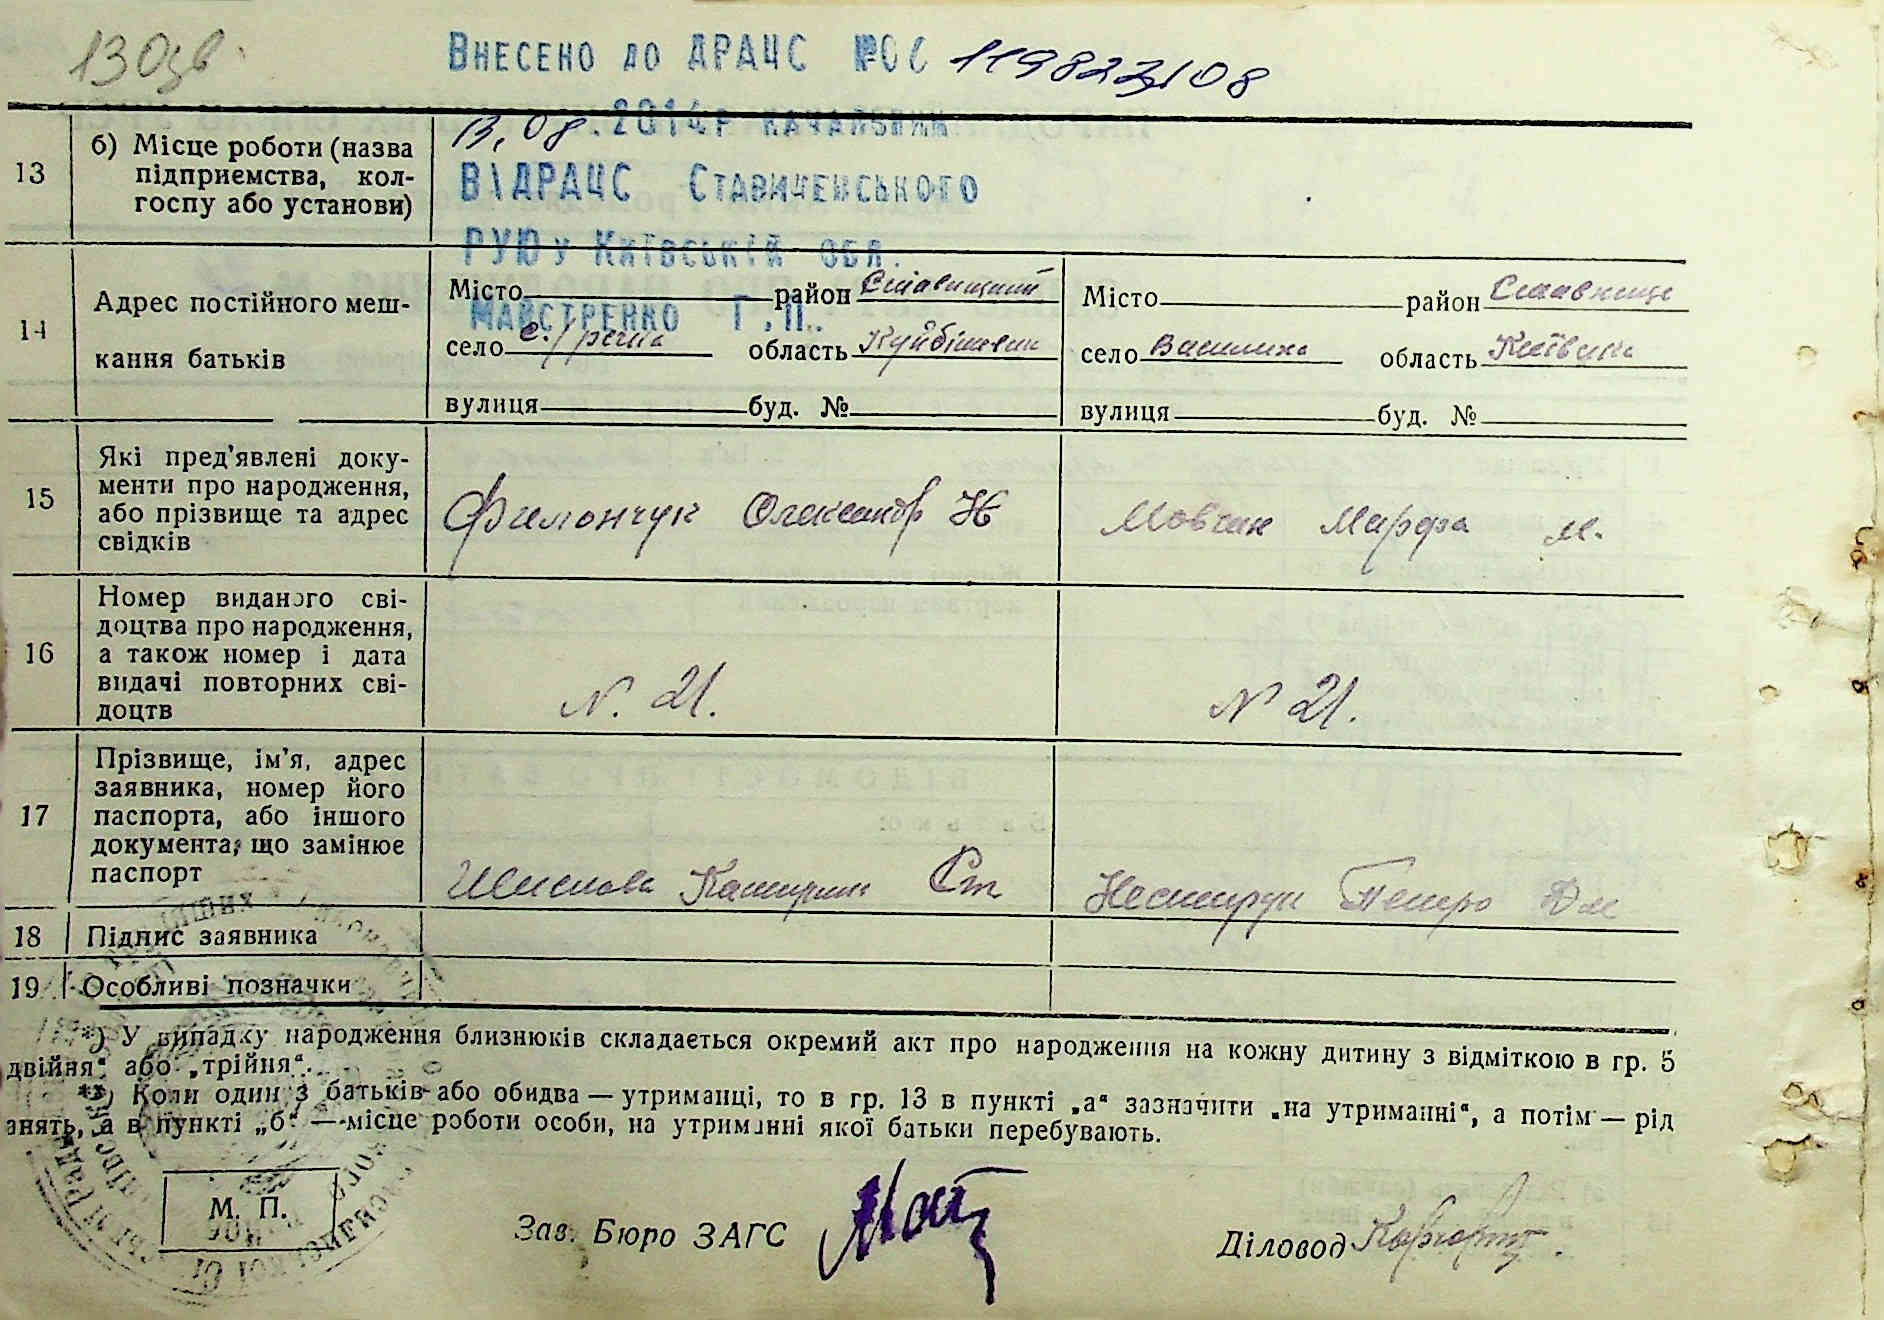 Внесено до ДРАЦС №00 119823108
13.08.2014р начальник
ВІДРАЦС Ставищенського
РУЮ у Київській обл.
Майстренко Г.П.
13
б) Місце роботи (назва
підприємства, кол-
госпу або установи)
14
Адрес постійного меш-
кання батьків
Місто район Ставищий
село область
вулиця буд. №
Місто район Ставище
село Василиха область Київська
вулиця буд. №
15
Які пред'явлені доку-
менти про народження,
або прізвище та адрес
свідків
Филончук Олександр Н
Мовчан Марфа М.
16
Номер виданого сві-
доцтва про народження,
а також номер і дата
видачі повторних сві-
доцтв
N. 21.
N 21.
17
Прізвище, ім'я, адрес
заявника, номер його
паспорта, або іншого
документа, що замінює
паспорт
Ст
Петро Дм
18
Підпис заявника
19
Особливі позначки
*) У випадку народження близнюків складається окремий акт про народження на кожну дитину з відміткою в гр. 5
двійня“ або „трійня“.
**) Коли один з батьків або обидва — утриманці, то в гр. 13 в пункті „а“ зазначити „на утриманні“, а потім — рід
знять, а в пункті „б“ — місце роботи особи, на утриманні якої батьки перебувають.
М. П.
Зав. Бюро ЗАГС
Діловод